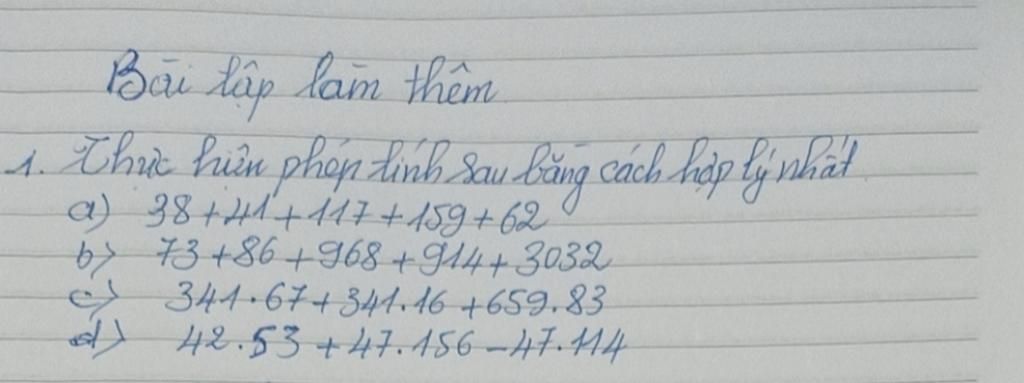 Bài tập làm thêm
1. Thực hiện phép tính sau bằng cách hợp lý nhất
a) 38+41+117+159+62
b) 73+86+968+914+3032
c) 341.67+341.16+659.83
d) 42.53+47.156-47.114